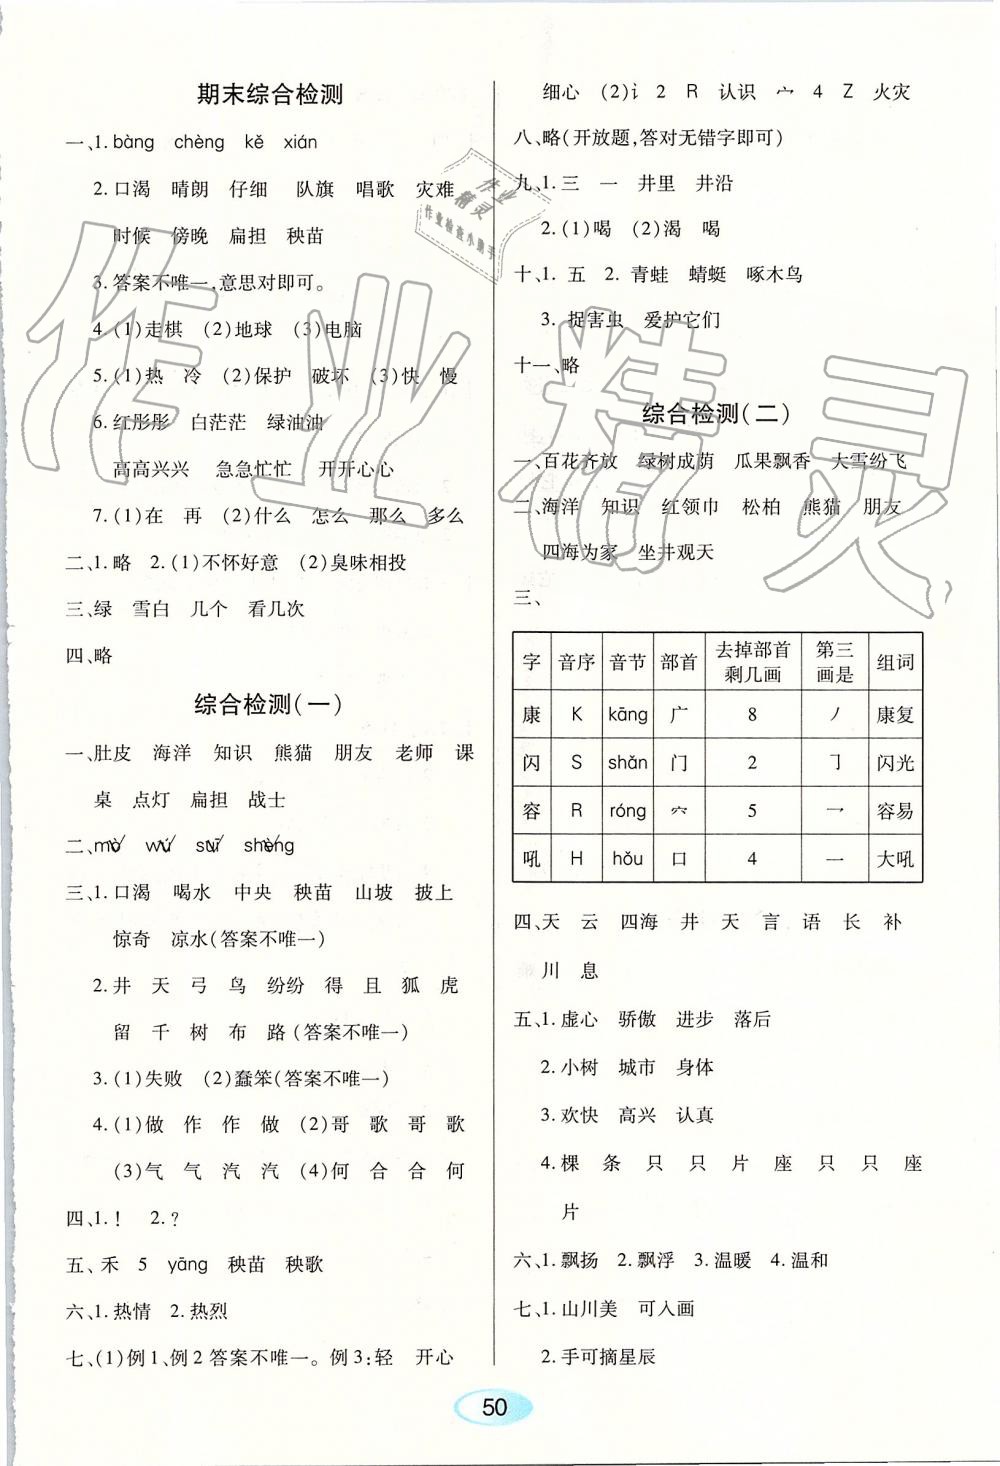 期末综合检测
一、1. bàng chèng kě xián
2. 口渴 晴朗 仔细 队旗 唱歌 灾难
时候 傍晚 扁担 秧苗
3. 答案不唯一,意思对即可。
4. (1)走棋 (2)地球 (3)电脑
5. (1)热 冷 (2)保护 破坏 (3)快 慢
6. 红彤彤 白茫茫 绿油油
高高兴兴 急急忙忙 开开心心
7. (1)在 再 (2)什么 怎么 那么 多么
二、1. 略 2. (1)不怀好意 (2)臭味相投
三、绿 雪白 几个 看几次
四、略
综合检测(一)
一、肚皮 海洋 知识 熊猫 朋友 老师 课
桌 点灯 扁担 战士
二、
三、1. 口渴 喝水 中央 秧苗 山坡 披上
惊奇 凉水(答案不唯一)
2. 井 天 弓 鸟 纷纷 得 且 狐 虎
留 千 树 布 路(答案不唯一)
3. (1)失败 (2)蠢笨(答案不唯一)
4. (1)做 作 作 做 (2)哥 歌 哥 歌
(3)气 气 汽 汽 (4)何 合 合 何
四、1. ! 2. ?
五、禾 5 yāng 秧苗 秧歌
六、1. 热情 2. 热烈
七、(1)例1、例2答案不唯一。例3:轻 开心
细心 (2)讠 2 R 认识 宀 4 Z 火灾
八、略(开放题,答对无错字即可)
九、1. 三 一 井里 井沿
2. (1)喝 (2)渴 喝
十、1. 五 2. 青蛙 蜻蜓 啄木鸟
3. 捉害虫 爱护它们
十一、略
综合检测(二)
一、百花齐放 绿树成荫 瓜果飘香 大雪纷飞
二、海洋 知识 红领巾 松柏 熊猫 朋友
四海为家 坐井观天
三、
字 音序 音节 部首 去掉部首剩几画 第三画是 组词
康 K kāng 广 8 丿 康复
闪 S shǎn 门 2 ㇆ 闪光
容 R róng 宀 5 ㇀ 容易
吼 H hǒu 口 4 一 大吼
四、天 云 四海 井 天 言 语 长 补
川 息
五、1. 虚心 骄傲 进步 落后
2. 小树 城市 身体
3. 欢快 高兴 认真
4. 棵 条 只 只 片 座 只 只 座
片
六、1. 飘扬 2. 飘浮 3. 温暖 4. 温和
七、1. 山川美 可入画
2. 手可摘星辰
50
作业精灵
作业
精灵
作业检查小助手